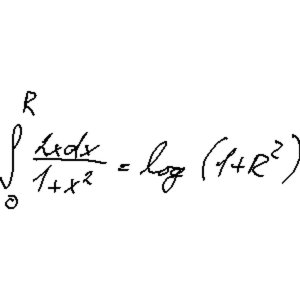 \int_{0}^{R} \frac{2xdx}{1+x^2} = log (1+R^2)